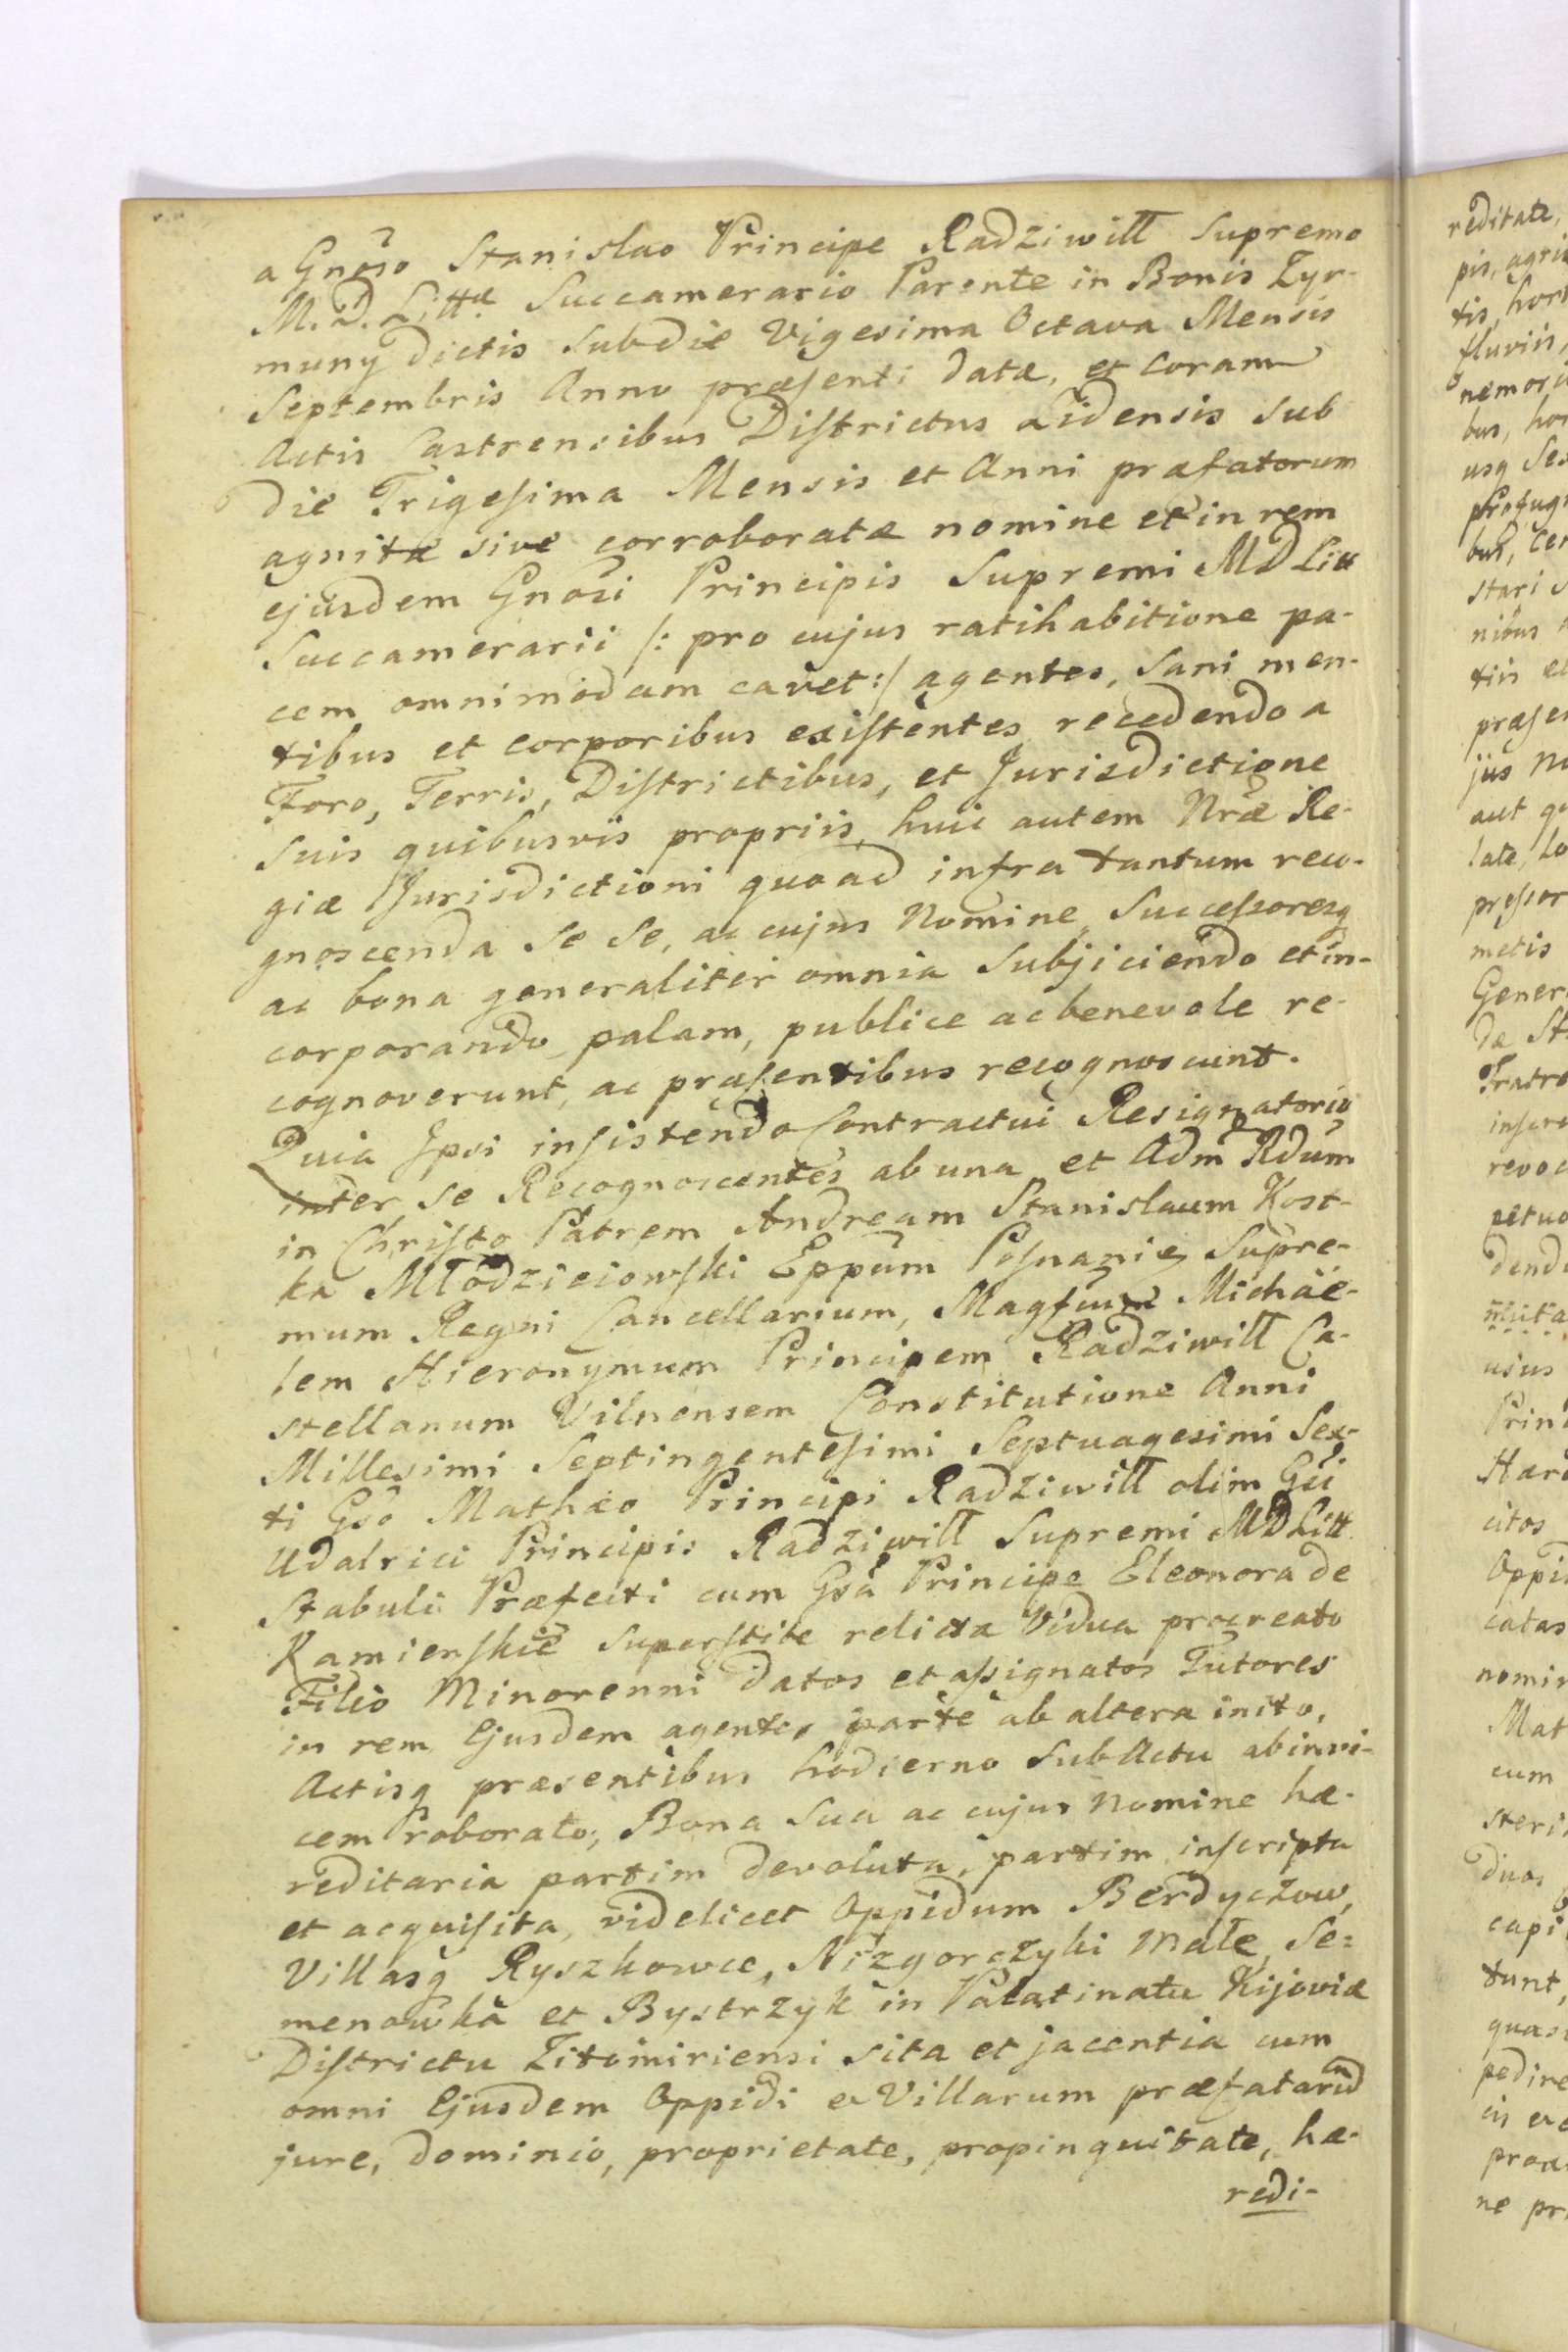 a Gnõso Stanislao Principe Radziwiłł Supremo
M. D. Littæ Succamerario Parente in Bonis Zyr-
muny dictis Sub die Vigesima Octava Mensis
Septembris Anno præsenti datæ, et Coram
Actis Castrensibus Districtus Lidensis Sub
die Trigesima Mensis et Anni præfatorum
agnitæ sive corroboratæ nomine et in rem
ejusdem Gnõsi Principis Supremi MD Litt
Succamerarii /: pro cujus ratihabitione pa-
cem omnimodam cavet :/ agentes, Sani men-
tibus et corporibus existentes recedendo a
Foro, Terris, Districtibus, et Jurisdictione
Suis quibusvis propriis, huic autem Nræ Re-
giæ Jurisdictioni quoad infra tantum reco-
gnoscenda Se Se, ac cujus Nomine Successoresq
ac bona generaliter omnia Subjiciendo et in-
corporando palam, publice ac benevole re-
cognoverunt, ac præsentibus recognoscunt.
Quia Ipsi insistendo Contractui Resignatorio
inter Se Recognoscentes ab una et Adm Rdum
in Christo Patrem Andream Stanislaum Kost-
ka Młodzieiowski Eppum Posnaniæ Supre-
mum Regni Cancellarium, Magfcum Michae-
lem Hieronymum Principem Radziwiłł Ca-
stellanum Vilnensem Constitutione Anni
Millesimi Septingentesimi Septuagesimi Sex-
ti Gsõ Mathæo Principi Radziwiłł olim Gsi
Udalrici Principis Radziwiłł Supremi MD Litt
Stabuli Præfecti cum Gsã Principe Eleonora de
Kamienskie Superstite relicta Vidua procreato
Filio Minorenni datos et assignatos Tutores
in rem Ejusdem agentes parte ab altera inito,
Actisq præsentibus hodierno Sub Actu abinvi-
cem roborato; Bona Sua ac cujus nomine hæ-
reditaria partim devoluta, partim inscripta
et acquisita, videlicet Oppidum Berdyczow,
Villasq Ryszkowce, Nizgorczyki Małe, Se=
menowka et Bystrzyk in Palatinatu Kijoviæ
Districtu Zitomiriensi sita et jacentia cum
omni Ejusdem Oppidi et Villarum præfatarum
jure, dominio, proprietate, propinquitate, hæ-
redi-
reditate,
pis, agri
tis, hor
fluviis,
nemori
bus, hor
usq Se
profug
bus, cen
stari s
nibus
tiis et
præsen
jus No
aut qu
late, lo
pressor
metis
Gener
de St
Fratre
inscri
revoc
petuo
dendo
muta
usus
Prin
Hære
citos
Oppi
catas
nomin
Mat
cum
steri
duos
capi
tunt,
quas
pedire
ne pr